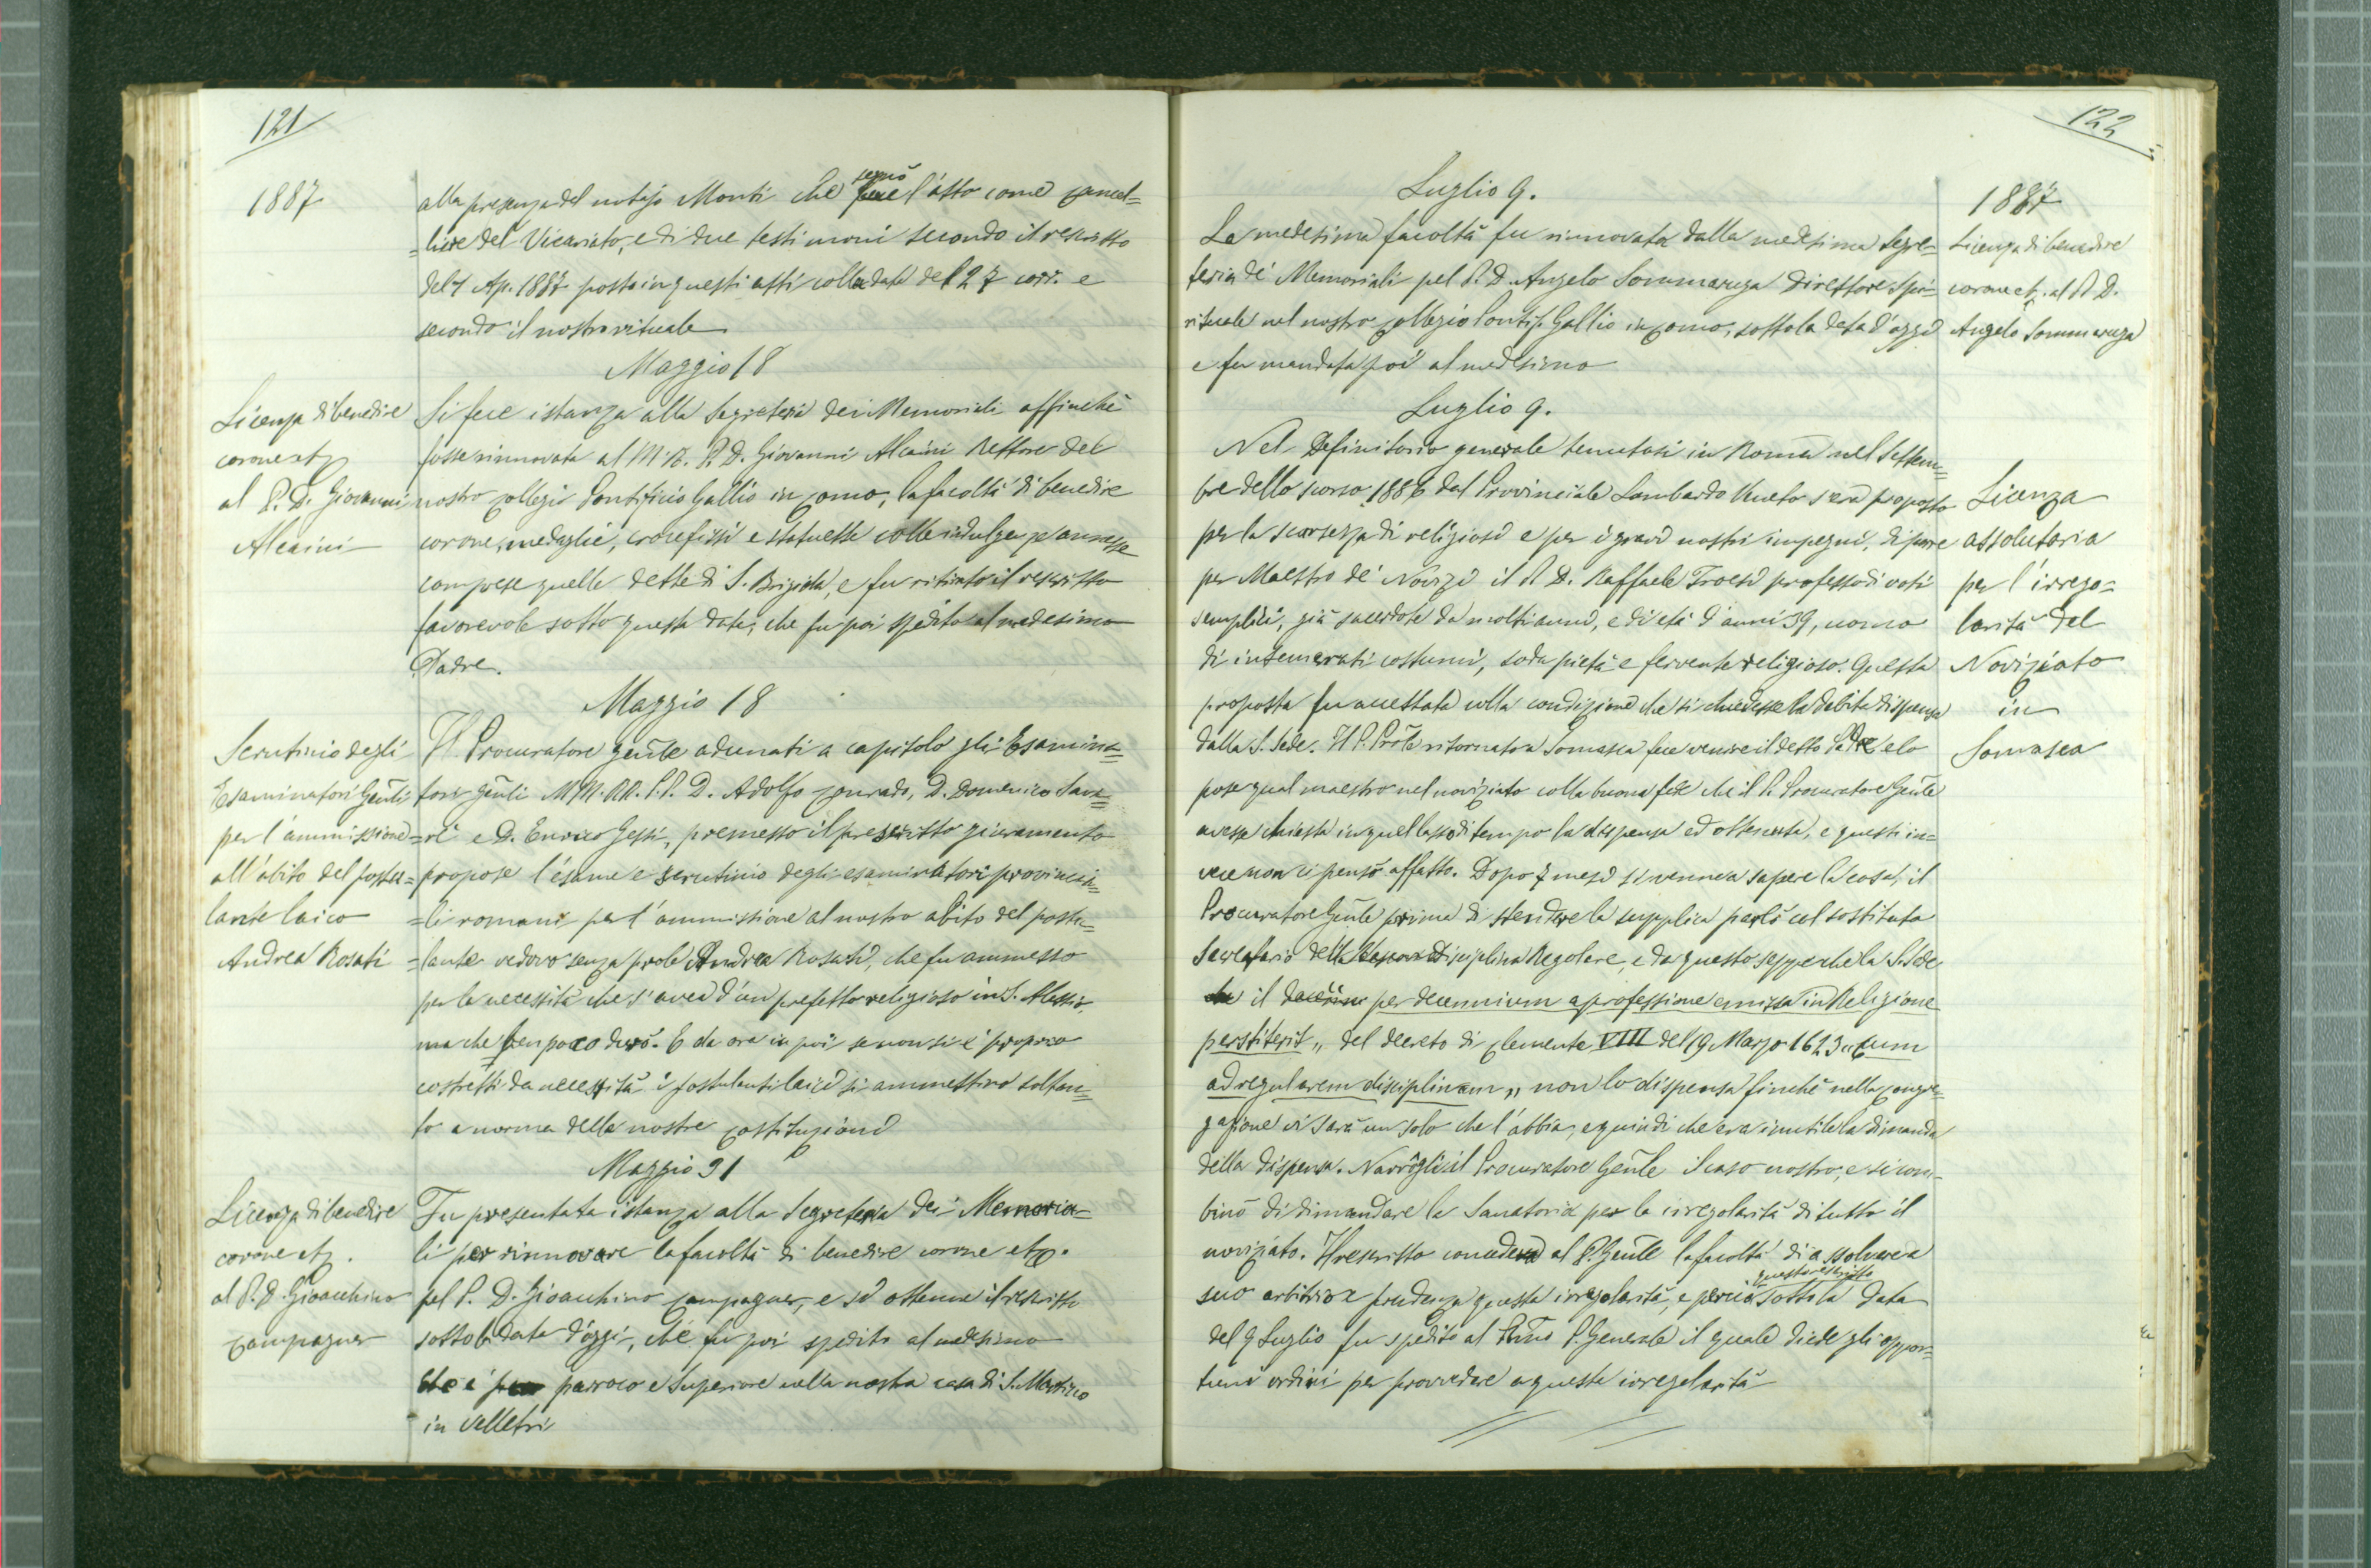 121
1887
alla presenza del notajo Monti che fece segnò l'atto come cancel=
=liere del Vicariato, e di due testimoni secondo il rescritto
del 4 Ap. 1887 posto in questi atti colla data del 27 corr. e
secondo il nostro rituale
Maggio 18
Licenza di benedire
corone etc
al P. D. Giovanni
Alcaini
Si fece istanza alla Segreteria dei Memoriali affinchè
fosse rinnovata al M. R. P. D. Giovanni Alcaini Rettore del
nostro collegio Pontificio Gallio in Como, la facoltà di benedire
corone, medaglie, crocefissi e statuette colle indulgenze annesse
comprese quelle dette di S. Brigida, e fu ritirato il rescritto
favorevole sotto questa data, che fu poi spedito al medesimo
Padre.
Maggio 18
Scrutinio degli
Esaminatori Genli
per l'ammissione
all'abito del postu=
lante laico
Andrea Rosati
Il Procuratore genle adunati a capitolo gli Esamina=
tori genli MM. RR. P.P. D. Adolfo Conrado, D. Domenico Sava=
=rè e D. Enrico Gessi, premesso il prescritto giuramento
propose l'esame e scrutinio degli esaminatori provincia=
=li romani per l'ammissione al nostro abito del postu=
=lante vedovo senza prole Andrea Rosati, che fu ammesso
per la necessità che s'avea d'un prefetto religioso in S. Alessio,
ma che ben poco durò. E da ora in poi se non si è proprio
costretti da necessità i postulanti laici si ammettino soltan=
to a norma delle nostre costituzioni
Maggio 31
Licenza di benedire
corone etc.
al P. D. Gioacchino
Campagner
Fu presentata istanza alla Segreteria dei Memoria=
li per rinnovare la facoltà di benedire corone etc.
pel P. D. Gioacchino Campagner, e si ottenne il rescritto
sotto la data d'oggi, che fu poi spedito al medesimo
che è parroco e Superiore nella nostra casa di S. Martino
in Velletri
122
1887
Luglio 9.
La medesima facoltà fu rinnovata dalla medesima Segre=
teria de' Memoriali pel P. D. Angelo Sommaruga Direttore Spi=
rituale nel nostro collegio Pontif. Gallio in Como, sotto la data d'oggi
e fu mandata poi al medesimo
Licenza di benedire
corone etc. al P. D.
Angelo Sommaruga
Luglio 9.
Nel Definitorio generale tenutosi in Roma nel Settem=
bre dello scorso 1886 dal Provinciale Lombardo Veneto s'era proposto
per la scarsezza di religiosi e per i gravi nostri impegni, di porre
per Maestro de' Novizi il P. D. Raffaele Troesi professo di voti
semplici, già sacerdote da molti anni, e di età d'anni 39, uomo
di intemerati costumi, soda pietà e fervente religioso. Questa
proposta fu accettata colla condizione che si chiedesse la debita dispensa
dalla S. Sede. Il P. Prole ritornato a Somasca fece venire il detto Padre e lo
pose qual maestro nel noviziato colla buona fede che il P. Procuratore Genle
avesse chiesta in quel lasso di tempo la dispensa ed ottenuta, e questi in=
vece non ci pensò affatto. Dopo 7 mesi si venne a sapere la cosa, il
Procuratore Genle prima di stendere la supplica parlò col sostituto
Secretario della Disciplina Regolare, e da questo seppe che la S. Sede
il per decennium a professione emissa in Religione
perstiterit „ del decreto di Clemente VIII del 19 Marzo 1623 „ Cum
ad regularem disciplinam „ non lo dispensa finchè nella congre=
gazione vi sarà un solo che l'abbia, e quindi che era inutile la dimanda
della dispensa. Narrògli il Procuratore Genle il caso nostro, e si com=
binò di dimandare la Sanatoria per la irregolarità di tutto il
noviziato. Il rescritto concedeva al P. Genle la facoltà di assolvere a
suo arbitrio e prudenza questa irregolarità, e perciò questo rescritto sotto la data
del 9 Luglio fu spedito al P. Generale il quale diede gli oppor=
tuni ordini per provvedere a questa irregolarità
Licenza
assolutoria
per l'irrego=
larità del
Noviziato
in
Somasca